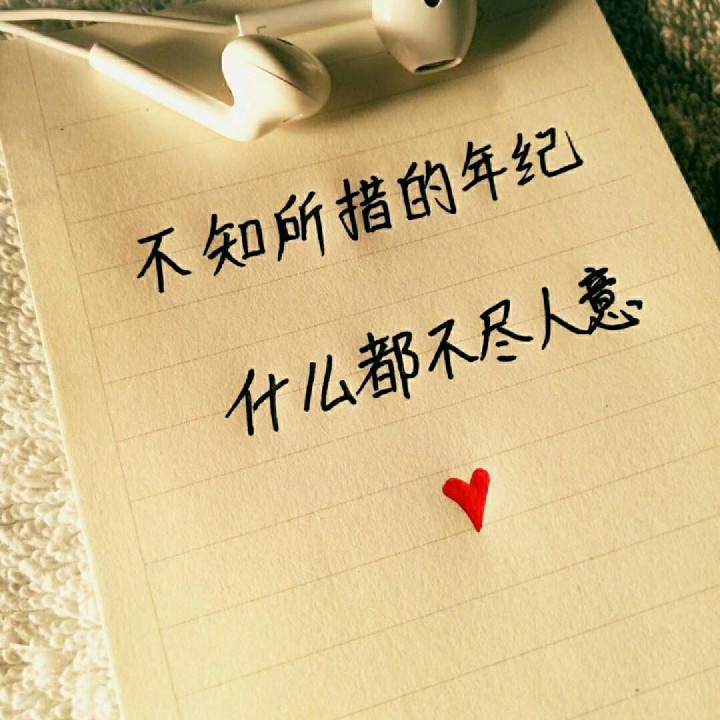 不知所措的年纪
什么都不尽人意